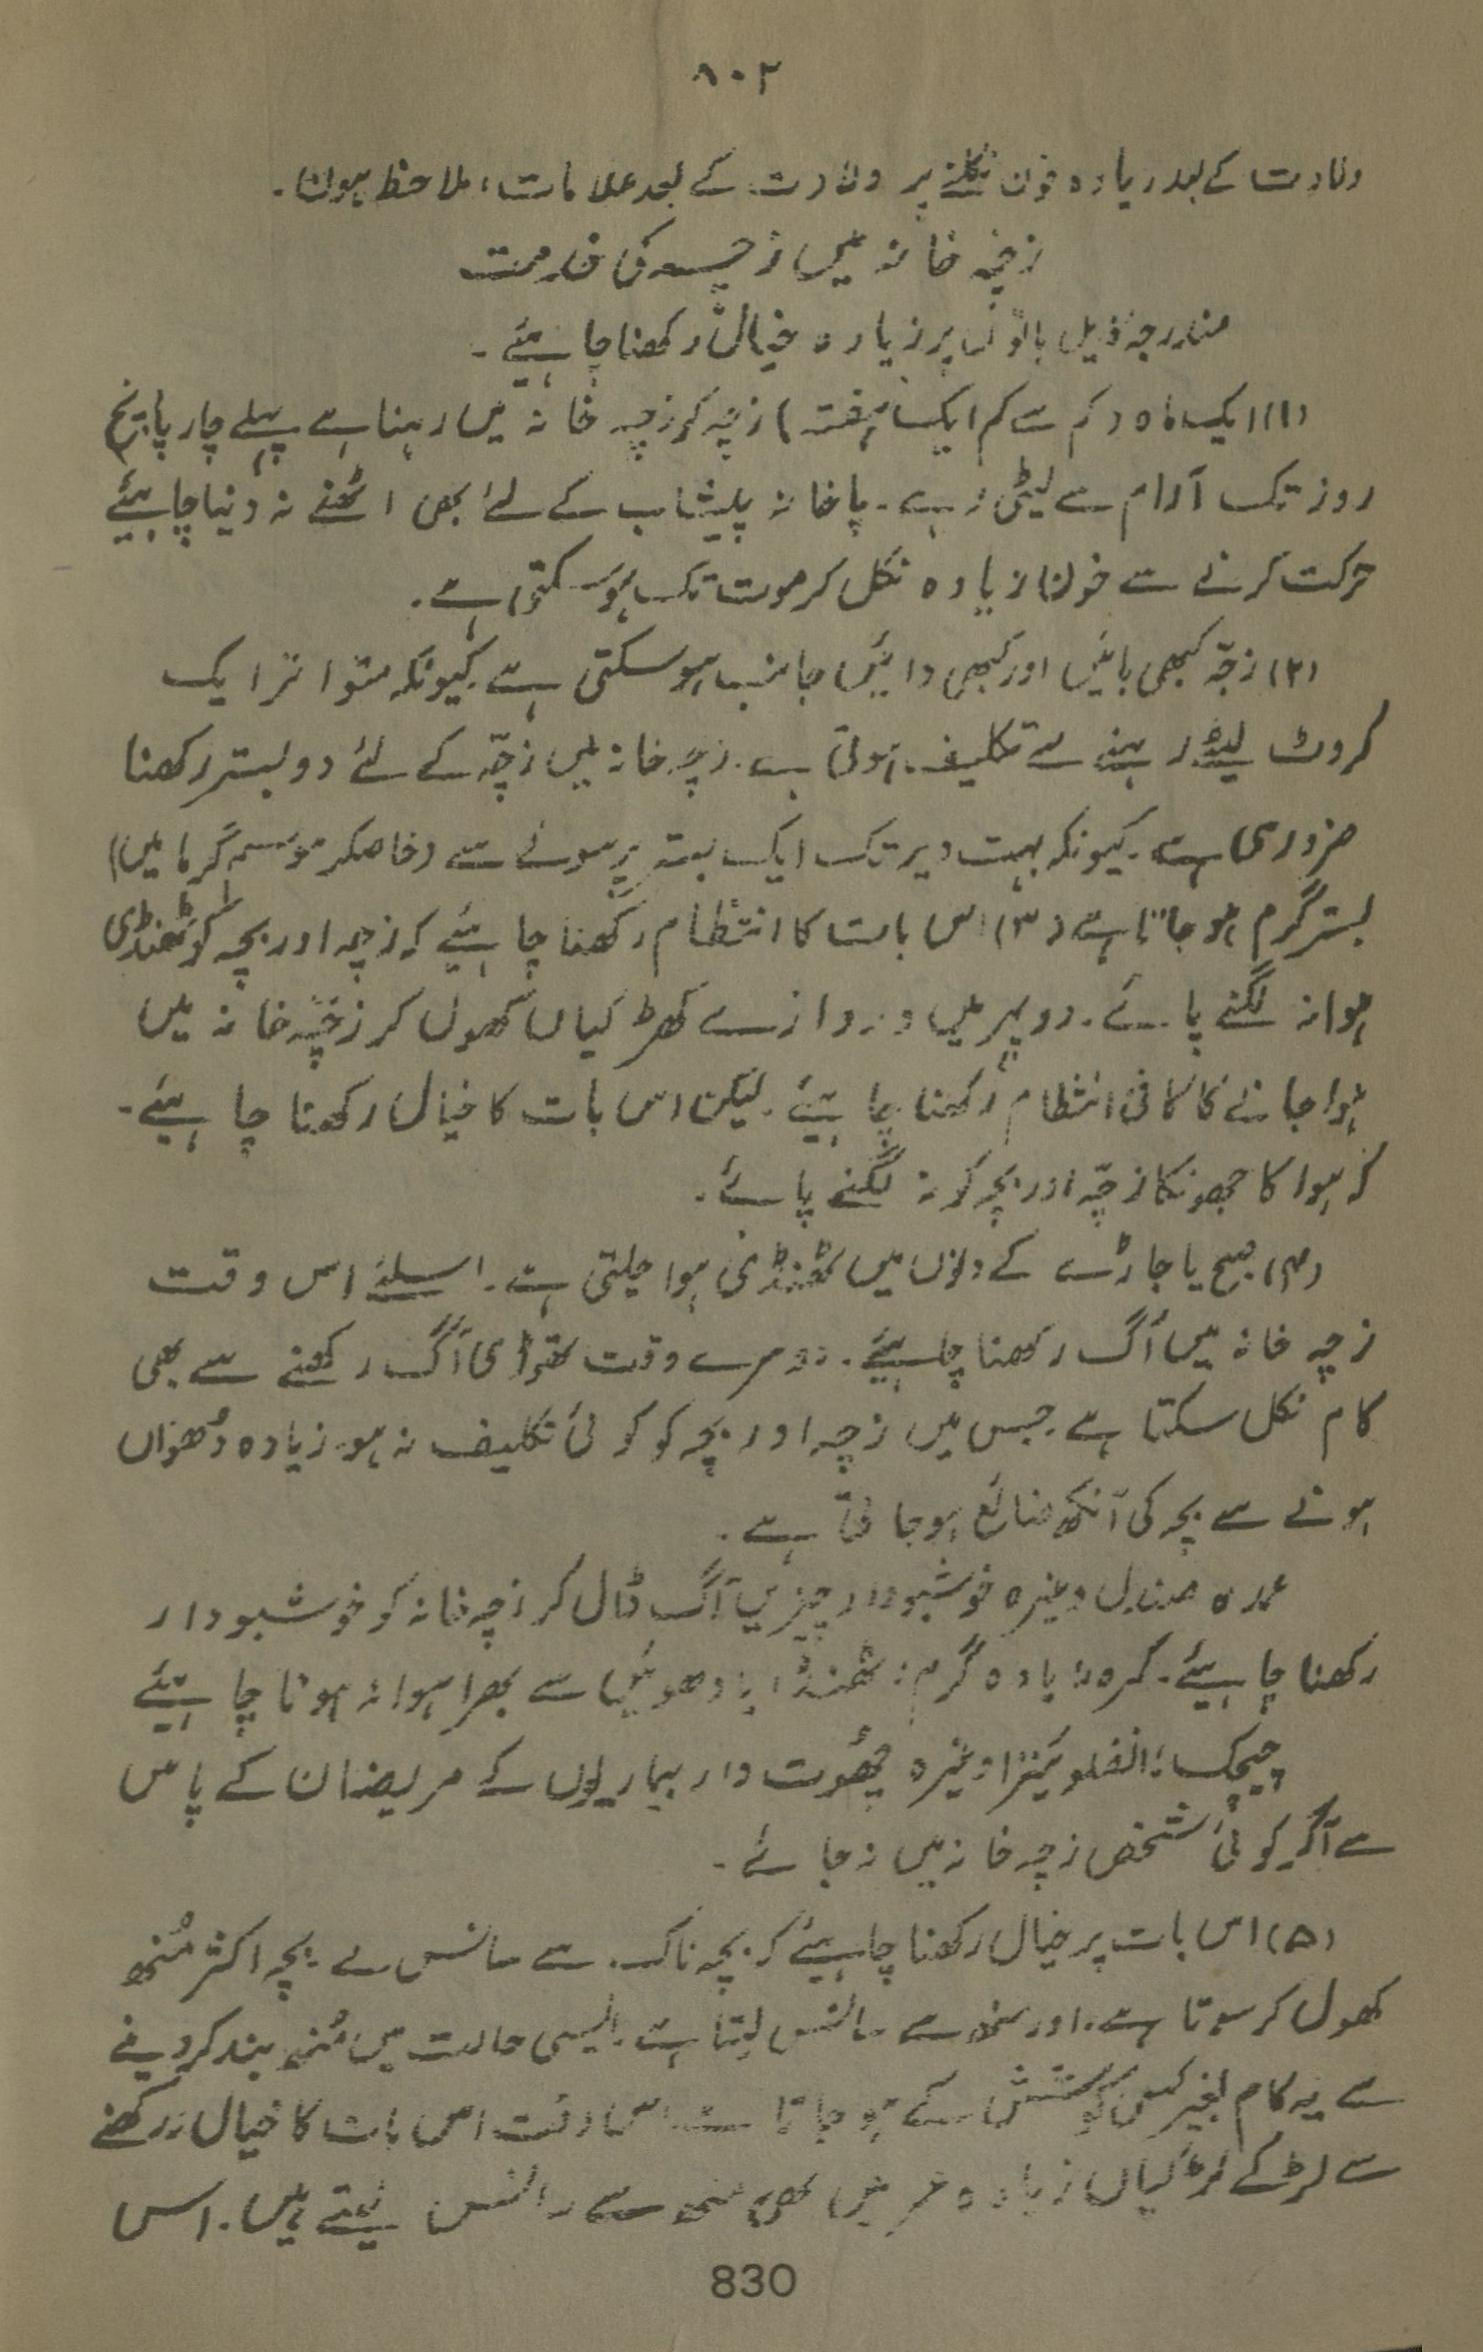 ۸۰۲
ولادت کے بعد زیادہ خون نکلنے پر ولادت کے بعد علامات، ملاحظہ ہوں۔
زچہ خانہ میں زچہ کی خدمت
مندرجہ ذیل باتوں پر زیادہ خیال رکھنا چاہیئے۔
(۱) ایک ماہ (کم سے کم ایک ہفتہ) زچہ کو زچہ خانہ میں رہنا ہے پہلے چار پانچ
روز تک آرام سے لیٹی رہے۔ پاخانہ پیشاب کے لئے بھی اٹھنے نہ دینا چاہیئے
حرکت کرنے سے خون زیادہ نکل کر موت تک ہو سکتی ہے۔
(۲) زچّہ کبھی بائیں اور کبھی دائیں جانب ہو سکتی ہے کیونکہ متواتر ایک
کروٹ لیٹے رہنے سے تکلیف ہوتی ہے۔ زچہ خانہ میں زچّہ کے لئے دو بستر رکھنا
ضروری ہے۔ کیونکہ بہت دیر تک ایک بستر پر سونے سے (خاصکر موسم گرما میں)
بستر گرم ہو جاتا ہے (۳) اس بات کا انتظام رکھنا چاہیئے کہ زچہ اور بچہ کو ٹھنڈی
ہوا نہ لگنے پائے۔ دوپہر میں دروازے کھڑکیاں کھول کر زچّہ خانہ میں
ہوا جانے کا کافی انتظام رکھنا چاہیئے۔ لیکن اس بات کا خیال رکھنا چاہیئے۔
کہ ہوا کا جھونکا زچّہ اور بچہ کو نہ لگنے پائے۔
(۴) صبح یا جاڑے کے دنوں میں ٹھنڈی ہوا چلتی ہے۔ اسلئے اس وقت
زچہ خانہ میں آگ رکھنا چاہیئے۔ دوسرے وقت تھوڑی آگ رکھنے سے بھی
کام نکل سکتا ہے جس میں زچہ اور بچہ کو کوئی تکلیف نہ ہو۔ زیادہ دُھواں
ہونے سے بچہ کی آنکھ ضائع ہو جاتی ہے۔
عمدہ صندل وغیرہ خوشبودار چیزیں آگ ڈال کر زچہ خانہ کو خوشبودار
رکھنا چاہیئے۔ کمرہ زیادہ گرم، ٹھنڈا یا دھوئیں سے بھرا ہوا نہ ہونا چاہیئے
چیچک، انفلوئینزا وغیرہ چھُوت دار بیماریوں کے مریضان کے پاس
سے آکر کوئی شخص زچہ خانہ میں نہ جائے۔
(۵) اس بات پر خیال رکھنا چاہیئے کہ بچہ ناک سے سانس لے بچہ اکثر مُنھ
کھول کر سوتا ہے۔ اور منھ سے سانس لیتا ہے۔ ایسی حالت میں مُنھ بند کر دینے
سے یہ کام بغیر کسی کوشش کے ہو جاتا ہے۔ اس وقت اس بات کا خیال نہ رکھنے
سے لڑکے لڑکیاں زیادہ عمر میں بھی منھ سے سانس لیتے ہیں۔ اس
830